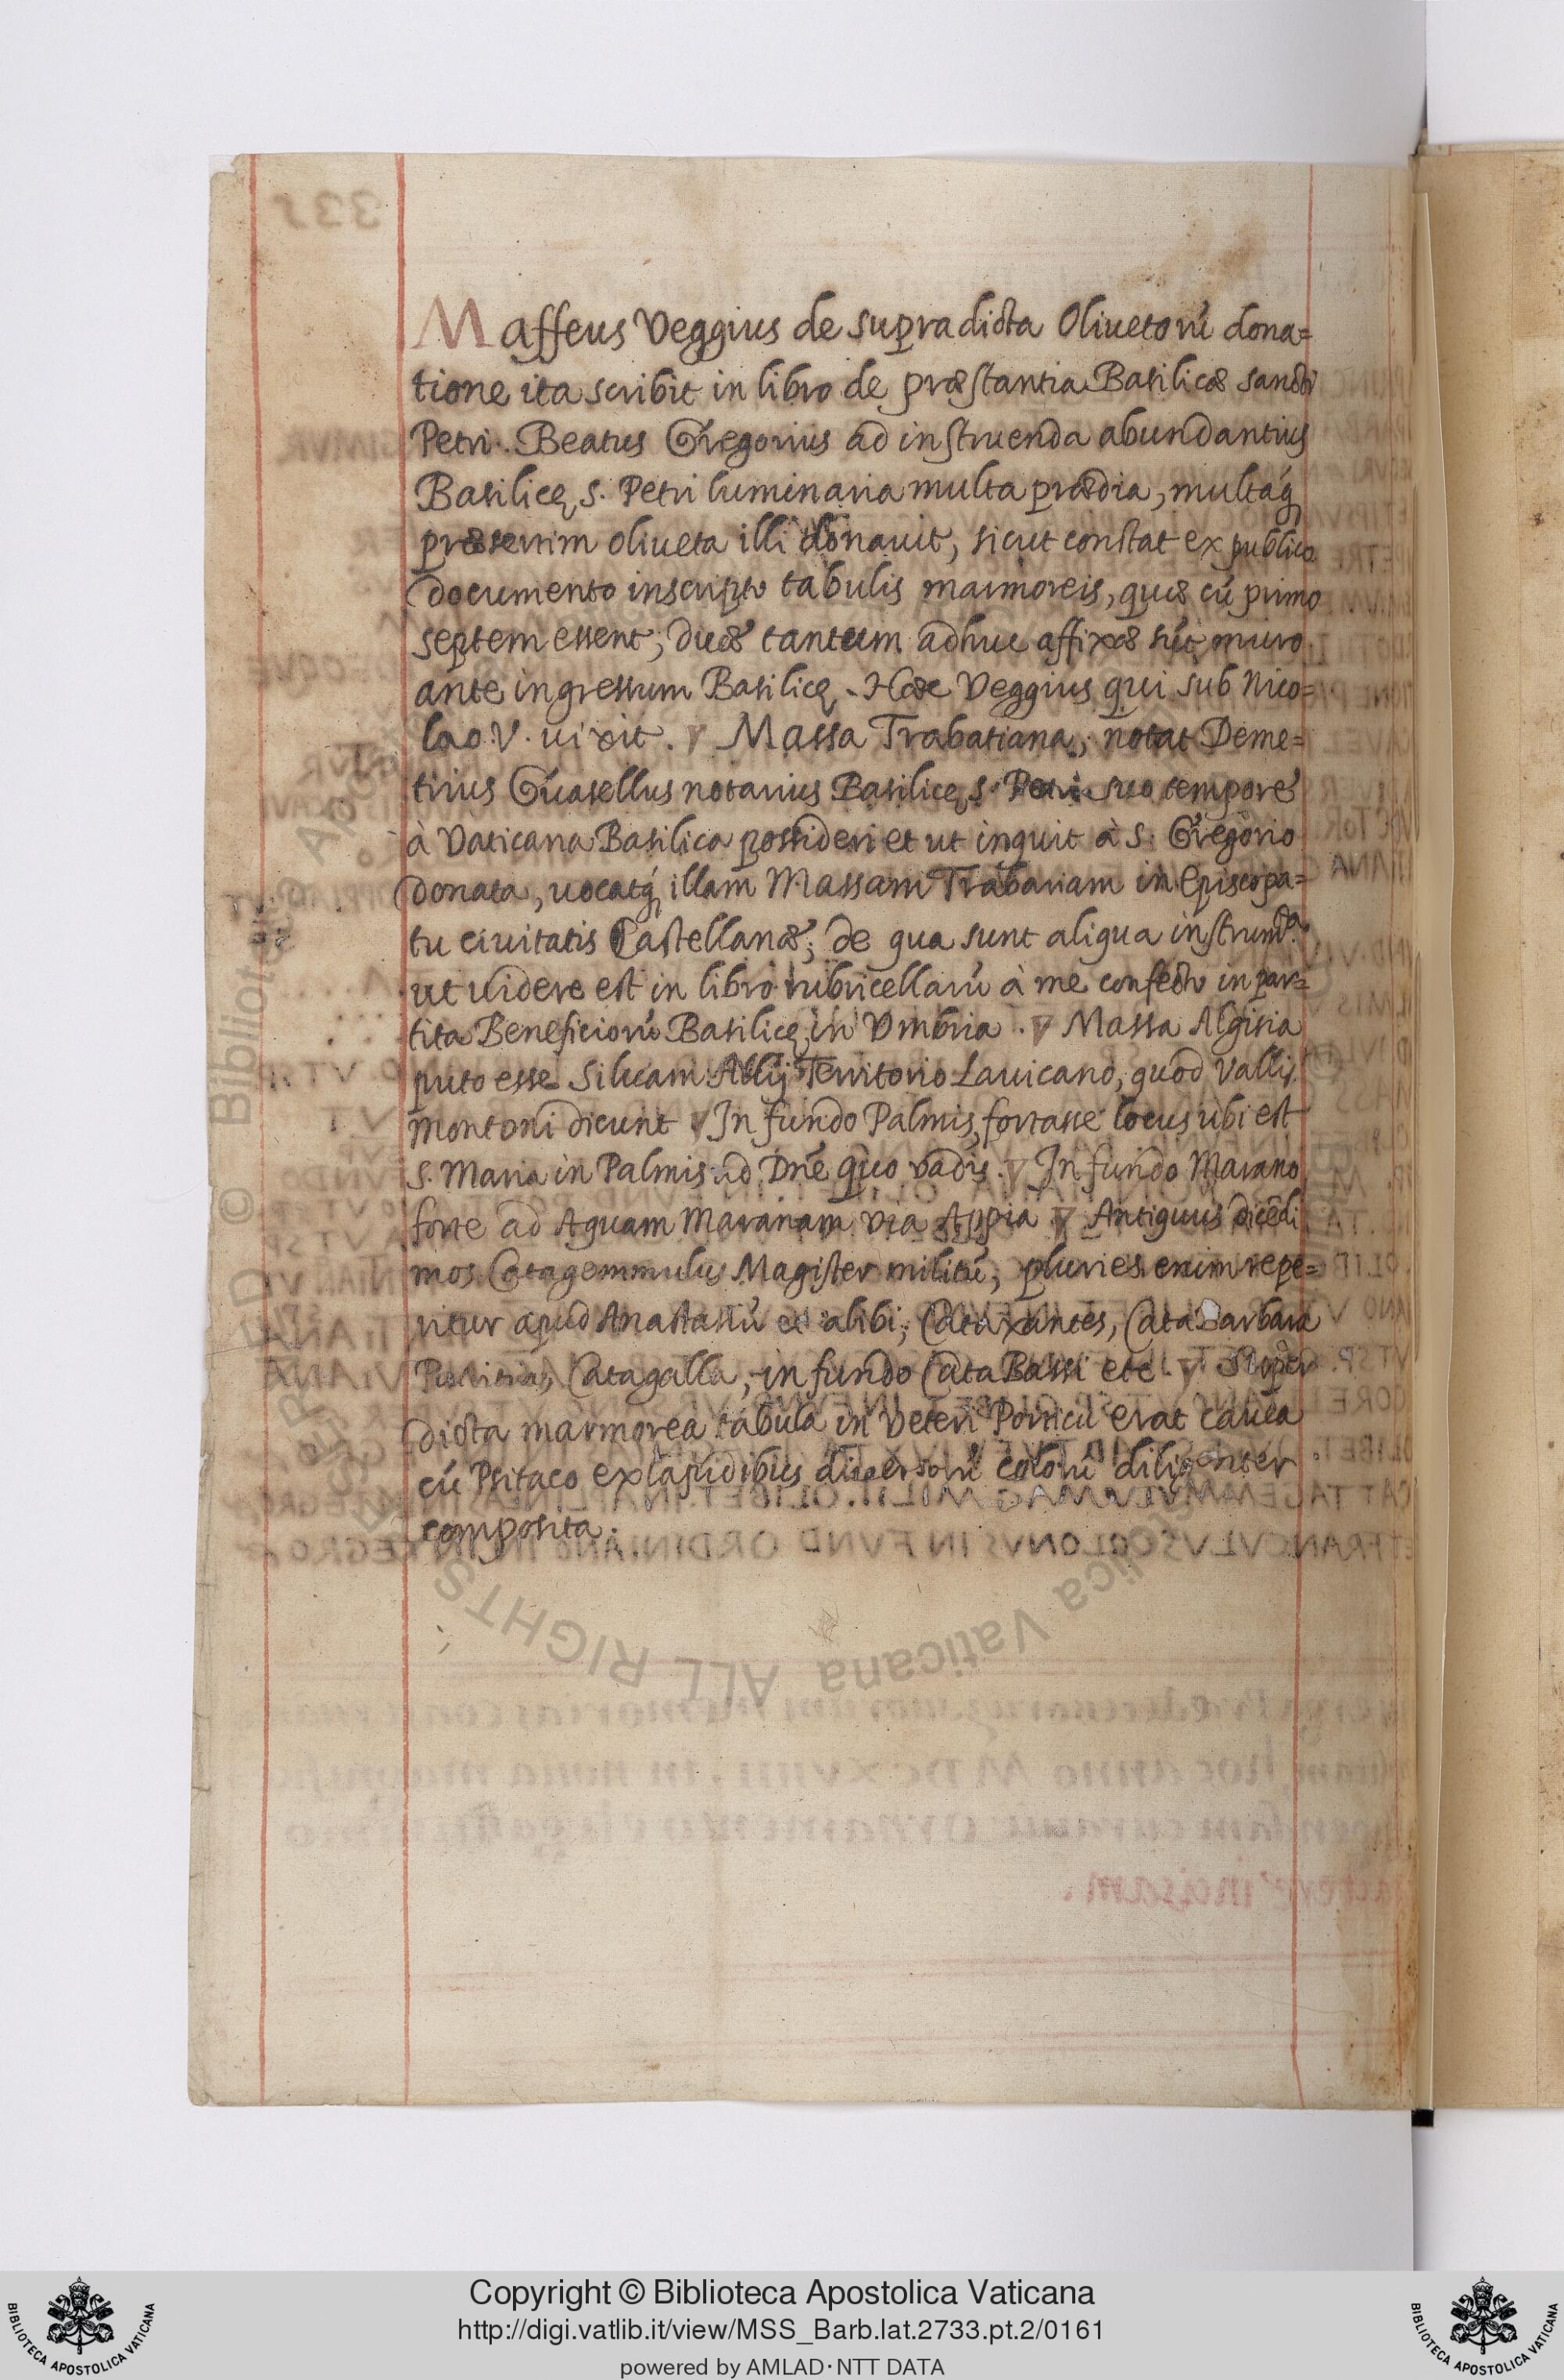 Maffeus Veggius de supradicta Oliuetorú dona=
tione ita scribit in libro de præstantia Basilicæ sancti
Petri. Beatus Gregorius ad instruenda abundantius
Basilicę S. Petri luminaria multa prædia, multaq́
præsertim oliueta illi donauit, sicut constat ex publico
documento inscripto tabulis marmoreis, quæ cú primo
septem essent, duæ tantum adhuc affixæ sút muro
ante ingressum Basilicę. Hæc Veggius qui sub Nico=
lao V. uixit. Massa Trabatiana, notat Deme=
trius Guasellus notarius Basilicę S. Petri suo tempore
à Vaticana Basilica possideri et ut inquit à S. Gregorio
donata, uocatq́ illam Massam Trabariam in Episcopa=
tu ciuitatis Castellanæ; de qua sunt aliqua instrumta.
ut uidere est in libro rubricellarú à me confecto in par=
tita Beneficiorú Basilicę in Vmbria. Massa Algisia
puto esse Siluam Allij Territorio Lauicano, quod Vallis
montoni dicunt In fundo Palmis, fortasse locus ubi est
S. Maria in Palmis ad Dñe quo vadis. In fundo Marano
forte ad Aquam Maranam via Appia Antiquus dicédi
mos Catagemmulus Magister militú, pluries enim repe=
ritur apud Anastasiú et alibi, Cataxantes, Cata Barbara
Patritia, Catagalla, in fundo Cata Bassi etc. Super
dicta marmorea tabula in Veteri Porticu erat cauea
cú Psitaco ex lapidibus diuersorú colorú diligenter
composita.
Copyright © Biblioteca Apostolica Vaticana
http://digi.vatlib.it/view/MSS_Barb.lat.2733.pt.2/0161
powered by AMLAD·NTT DATA
BIBLIOTECA APOSTOLICA VATICANA
BIBLIOTECA APOSTOLICA VATICANA